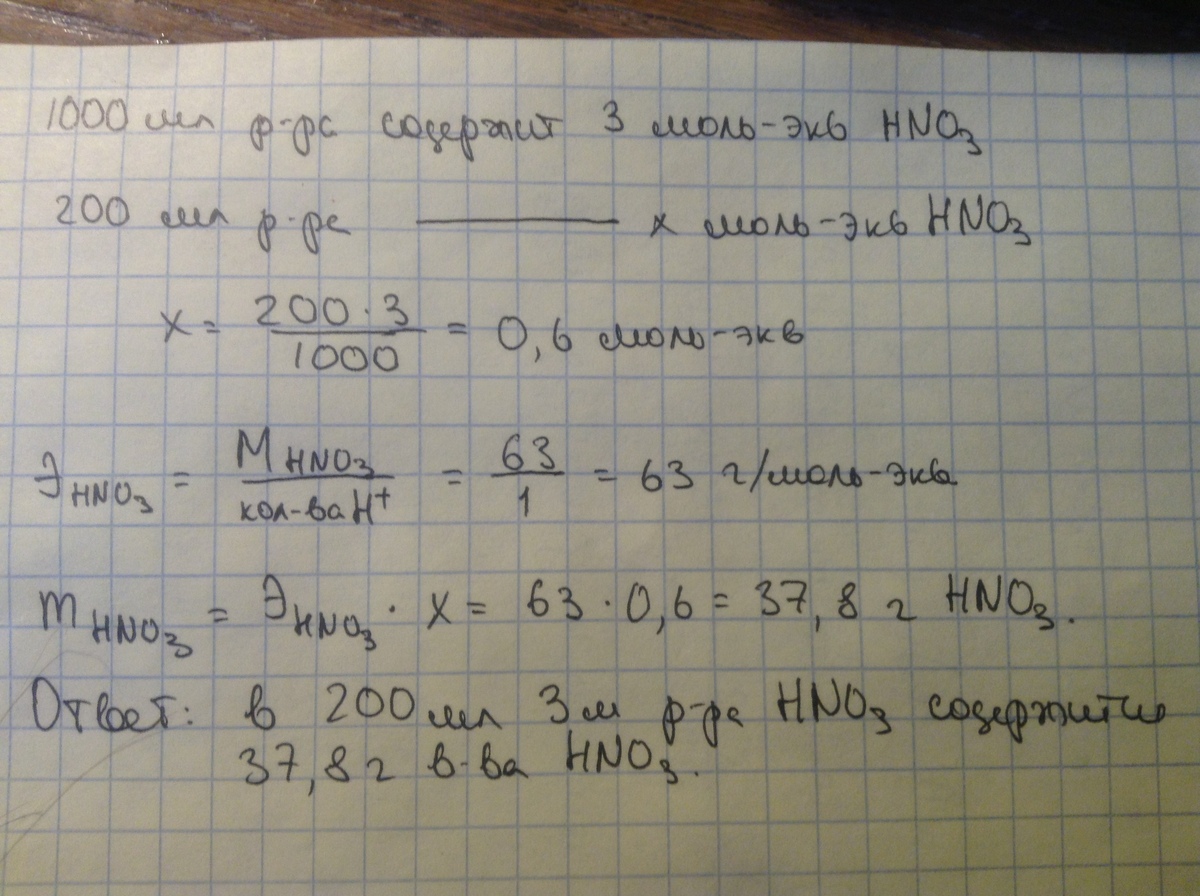 1000 мл р-ра содержит 3 моль-экв HNO₃
200 мл р-ра ——— x моль-экв HNO₃
x = 200·3 / 1000 = 0,6 моль-экв
Э HNO₃ = M HNO₃ / кол-ва H⁺ = 63 / 1 = 63 г/моль-экв
m HNO₃ = Э HNO₃ · x = 63·0,6 = 37,8 г HNO₃.
Ответ: в 200 мл 3м р-ра HNO₃ содержится
37,8 г в-ва HNO₃.